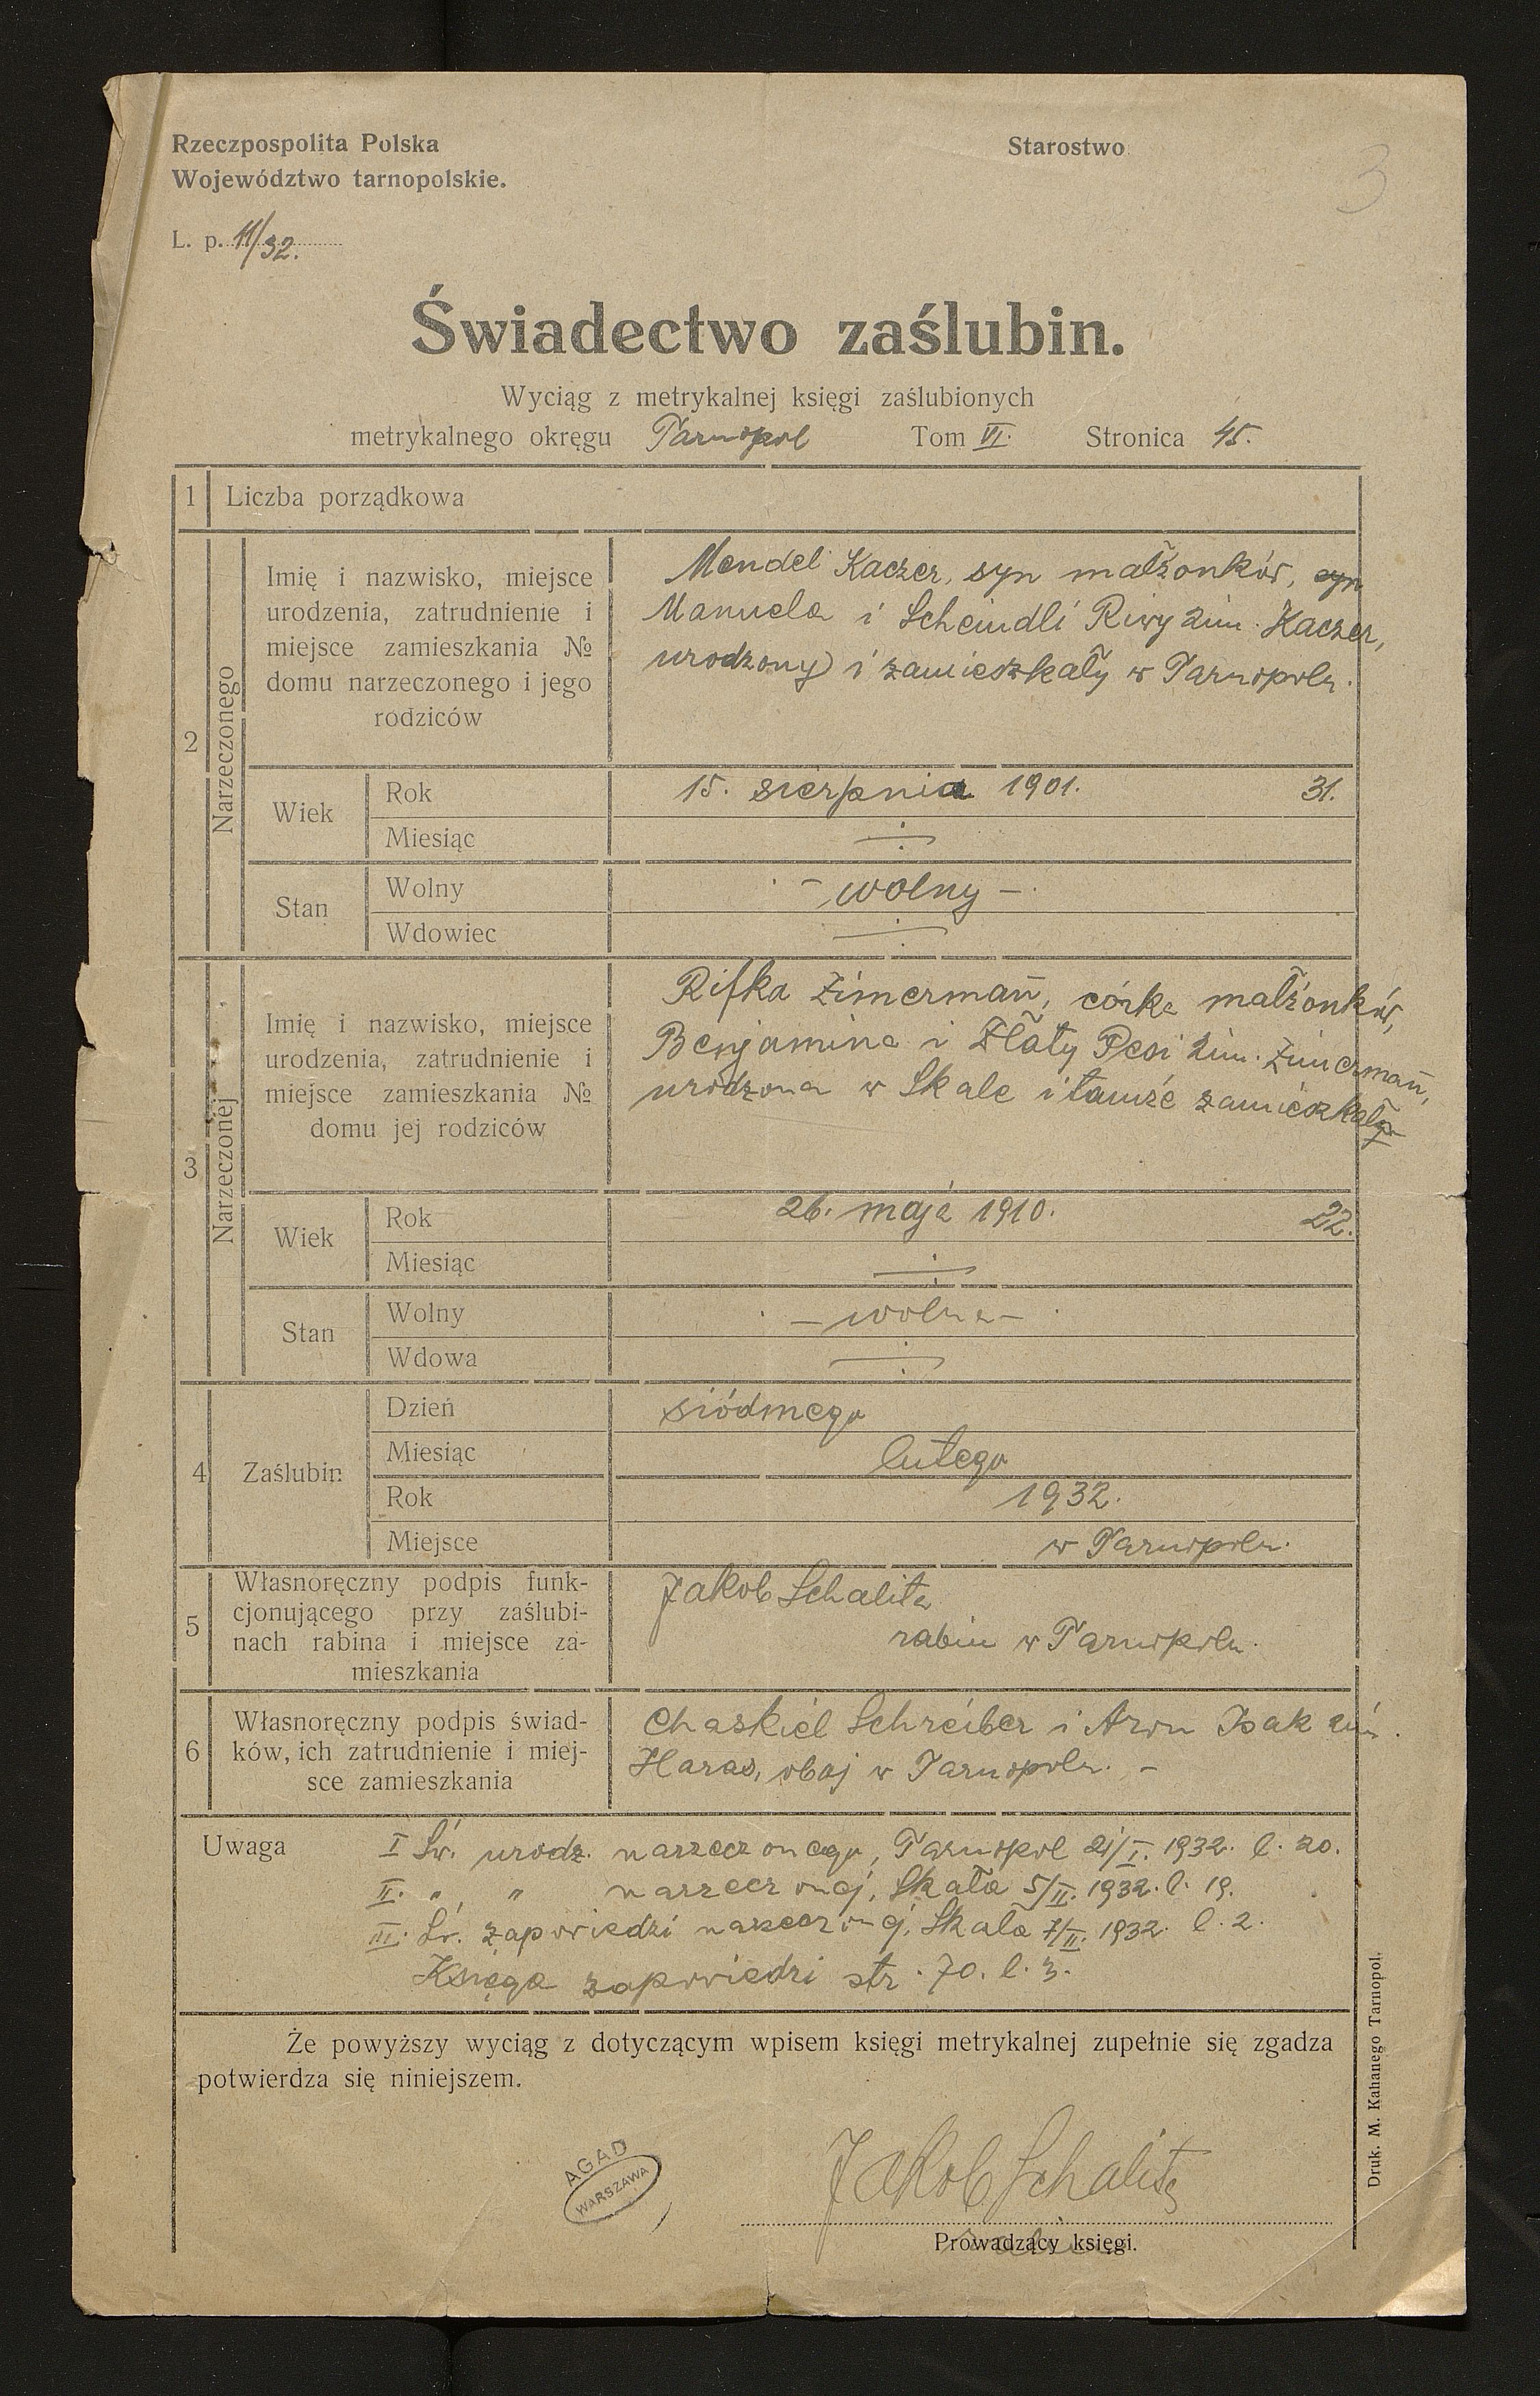 Rzeczpospolita Polska
Województwo tarnopolskie.
Starostwo
3
L. p. 11/32.
Świadectwo zaślubin.
Wyciąg z metrykalnej księgi zaślubionych
metrykalnego okręgu Tarnopol Tom VI. Stronica 45.
1 Liczba porządkowa
2 Narzeczonego
Imię i nazwisko, miejsce
urodzenia, zatrudnienie i
miejsce zamieszkania №
domu narzeczonego i jego
rodziców
Mendel Kaczer, syn małżonków, syn
Manuela i Scheindli Riwy 2im. Kaczer,
urodzony i zamieszkały w Tarnopolu.
Wiek
Rok 15. sierpnia 1901. 31.
Miesiąc
Stan
Wolny - wolny -
Wdowiec
3 Narzeczonej
Imię i nazwisko, miejsce
urodzenia, zatrudnienie i
miejsce zamieszkania №
domu jej rodziców
Rifka Zimermañ, córka małżonków,
Benjamina i Złaty Pesi 2im. Zimermañ,
urodzona w Skale i tamże zamieszkała
Wiek
Rok 26. maja 1910. 22.
Miesiąc
Stan
Wolny - wolna -
Wdowa
4 Zaślubin
Dzień siódmego
Miesiąc lutego
Rok 1932.
Miejsce w Tarnopolu.
5 Własnoręczny podpis funk-
cjonującego przy zaślubi-
nach rabina i miejsce za-
mieszkania
Jakob Schalita
rabin w Tarnopolu.
6 Własnoręczny podpis świad-
ków, ich zatrudnienie i miej-
sce zamieszkania
Chaskiel Schreiber i Aron Isak 2im.
Haras, obaj w Tarnopolu. -
Uwaga I Św. urodz. narzeczonego, Tarnopol 21/I. 1932. l. 20.
II. " " narzeczonej, Skała 5/II. 1932. l. 19.
III. Św. zapowiedzi narzeczonej, Skała 7/II. 1932. l. 2.
Księga zapowiedzi str. 70. l. 3.
Że powyższy wyciąg z dotyczącym wpisem księgi metrykalnej zupełnie się zgadza
potwierdza się niniejszem.
AGAD
WARSZAWA
Jakob Schalita
Prowadzący księgi.
Druk. M. Kahanego Tarnopol.